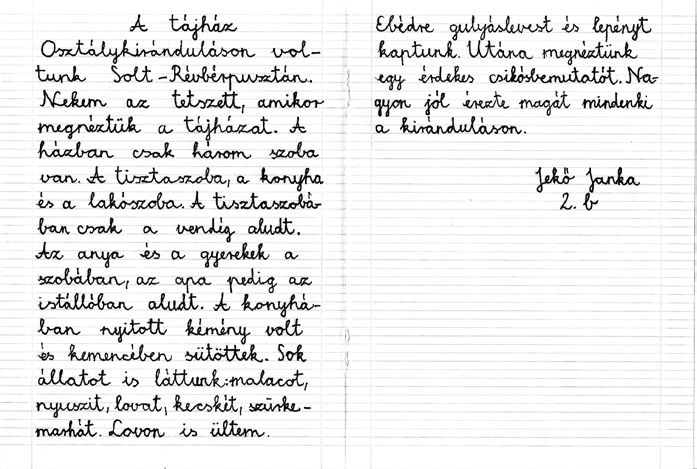 A tájház
Osztálykiránduláson vol-
tunk Solt-Révbérpusztán.
Nekem az tetszett, amikor
megnéztük a tájházat. A
házban csak három szoba
van. A tisztaszoba, a konyha
és a lakószoba. A tisztaszobá-
ban csak a vendég aludt.
Az anya és a gyerekek a
szobában, az apa pedig az
istállóban aludt. A konyhá-
ban nyitott kémény volt
és kemencében sütöttek. Sok
állatot is láttunk: malacot,
nyuszit, lovat, kecskét, szürke-
marhát. Lovon is ültem.
Ebédre gulyáslevest és lepényt
kaptunk. Utána megnéztünk
egy érdekes csikósbemutatót. Na-
gyon jól érezte magát mindenki
a kiránduláson.
Jekő Janka
2. b